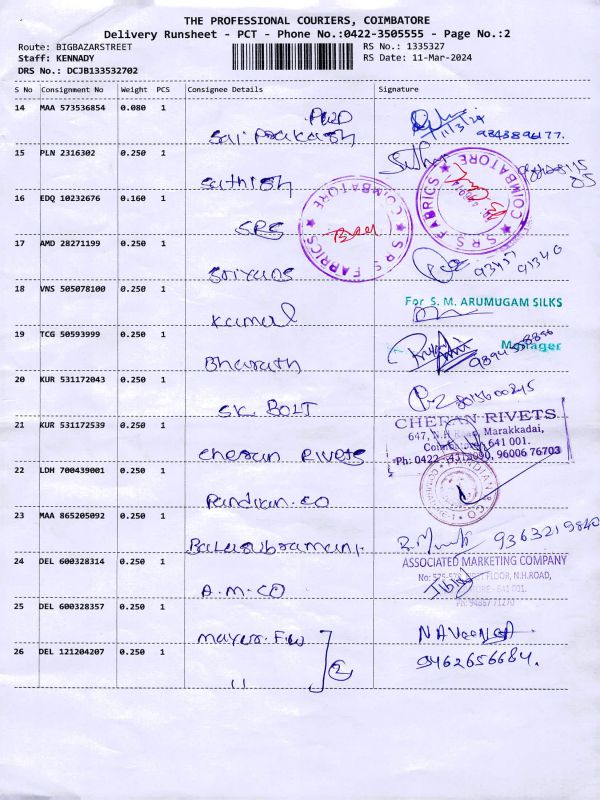 THE PROFESSIONAL COURIERS, COIMBATORE
Delivery Runsheet - PCT - Phone No.:0422-3505555 - Page No.:2
Route: BIGBAZARSTREET
RS No.: 1335327
Staff: KENNADY
RS Date: 11-Mar-2024
DRS No.: DCJB133532702
S No Consignment No Weight PCS Consignee Details Signature
14 MAA 573536854 0.080 1
Sai Prakash
11/3/24
15 PLN 2316302 0.250 1
Sathish
16 EDQ 10232676 0.160 1
SRS
COIMBATORE
S R S FABRICS
COIMBATORE
S R S FABRICS
17 AMD 28271199 0.250 1
Sriyans
93457
91340
18 VNS 505078100 0.250 1
For S. M. ARUMUGAM SILKS
Kamal
19 TCG 50593999 0.250 1
Manager
Bharath
20 KUR 531172043 0.250 1
SK BOLT
21 KUR 531172539 0.250 1
CHERAN RIVETS
Marakkadai,
641 001.
Ph: 0422 96006 76703
Cheran Rivets
22 LDH 700439001 0.250 1
Pandian.CO
23 MAA 865205092 0.250 1
9363219840
Balasubramani.
24 DEL 600328314 0.250 1
ASSOCIATED MARKETING COMPANY
FLOOR, N.H.ROAD,
A.M.CO
25 DEL 600328357 0.250 1
NAVEEN
2
26 DEL 121204207 0.250 1
9462656684.